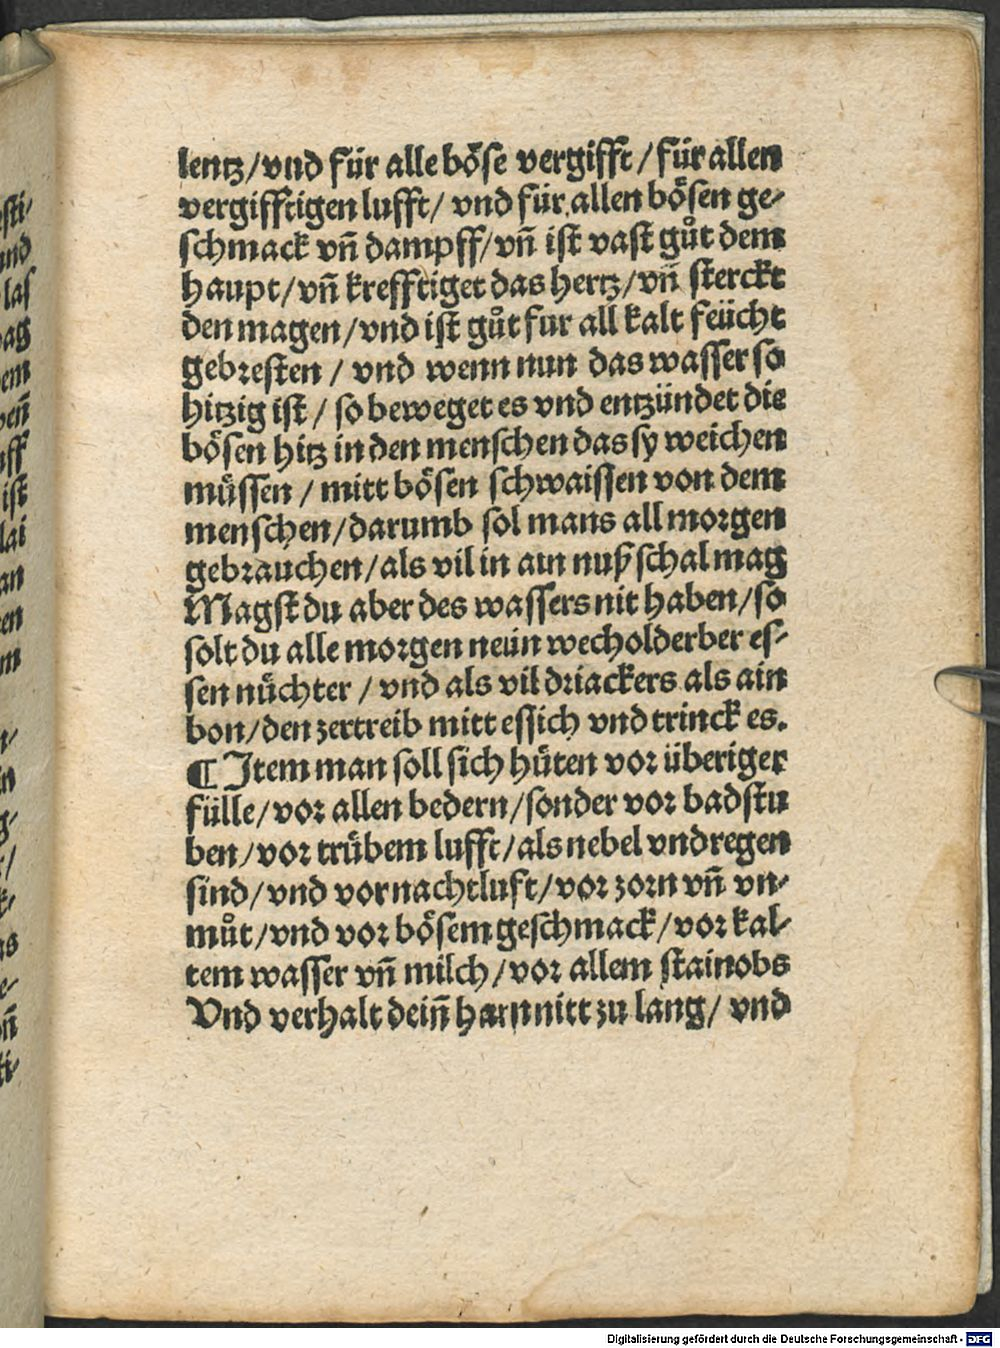 lentz/vnd für alle böse vergifft/für allen
vergifftigen lufft/ vnd für allen bösen ge-
schmack vn̄ dampff/vn̄ ist vast gůt dem
haupt/vn̄ krefftiget das hertz/vn̄ sterckt
den magen/vnd ist gůt fur all kalt feücht
gebresten / vnd wenn nun das wasser so
hitzig ist / so beweget es vnd entzündet die
bösen hitz in den menschen das sy weichen
müssen / mitt bösen schwaissen von dem
menschen/darumb sol mans all morgen
gebrauchen/als vil in ain nußschal mag
Magst du aber des wassers nit haben/so
solt du alle morgen neün wecholderber es-
sen nüchter / vnd als vil driackers als ain
bon/den zertreib mitt essich vnd trinck es.
¶ Item man soll sich hüten vor überiger
fülle/vor allen bedern/sonder vor badstu
ben/vor trübem lufft/als nebel vnd regen
sind/vnd vor nachtluft/vor zorn vn̄ vn-
můt/vnd vor bösem geschmack/vor kal-
tem wasser vn̄ milch/vor allem stainobs
Vnd verhalt dein̄ harn nitt zu lang/ vnd
Digitalisierung gefördert durch die Deutsche Forschungsgemeinschaft - DFG